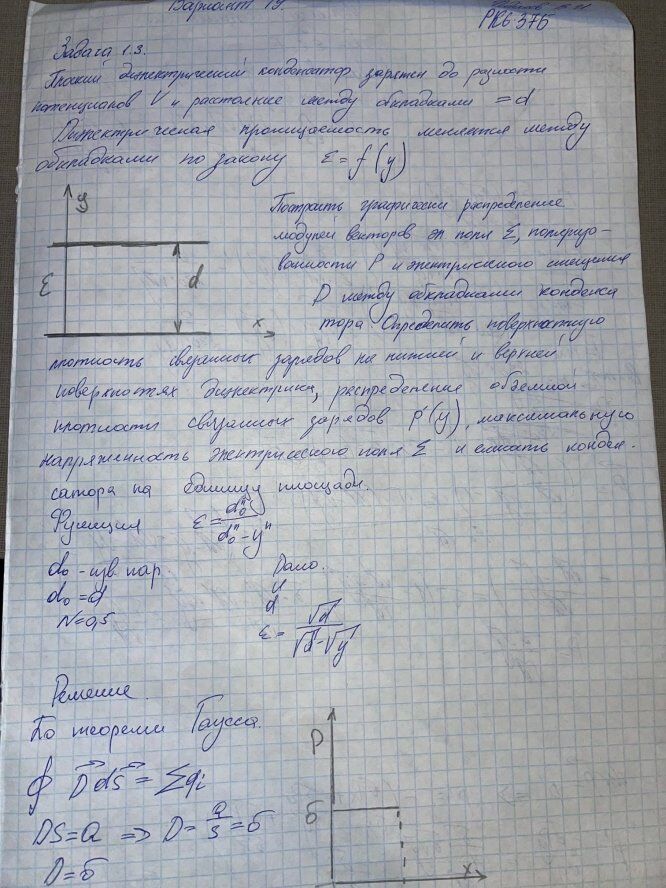 Вариант 19.
Задача 1.3.
Плоский диэлектрический конденсатор заряжен до разности
потенциалов V и расстояние между обкладками = d
Диэлектрическая проницаемость меняется между
обкладками по закону ε = f(y)
y
ε
d
x
Построить графически распределение
модулей векторов эл поля E, поляризо-
ванности P и электрического смещения
D между обкладками конденса
тора Определить поверхностную
плотность связанных зарядов на нижней и верхней
поверхностях диэлектрика, распределение объемной
плотности связанных зарядов ρ'(y), максимальную
напряженность электрического поля E и емкость конден-
сатора на единицу площади.
Функция ε = d₀ⁿ / (d₀ⁿ - yⁿ)
d₀ - изв. пар.
d₀ = d
N = 0,5
Дано.
U
d
ε = √d / (√d - √y)
Решение.
По теореме Гаусса.
∮ D⃗ dS⃗ = Σqi
DS = Q ⇒ D = Q/S = б
D = б
D
б
x